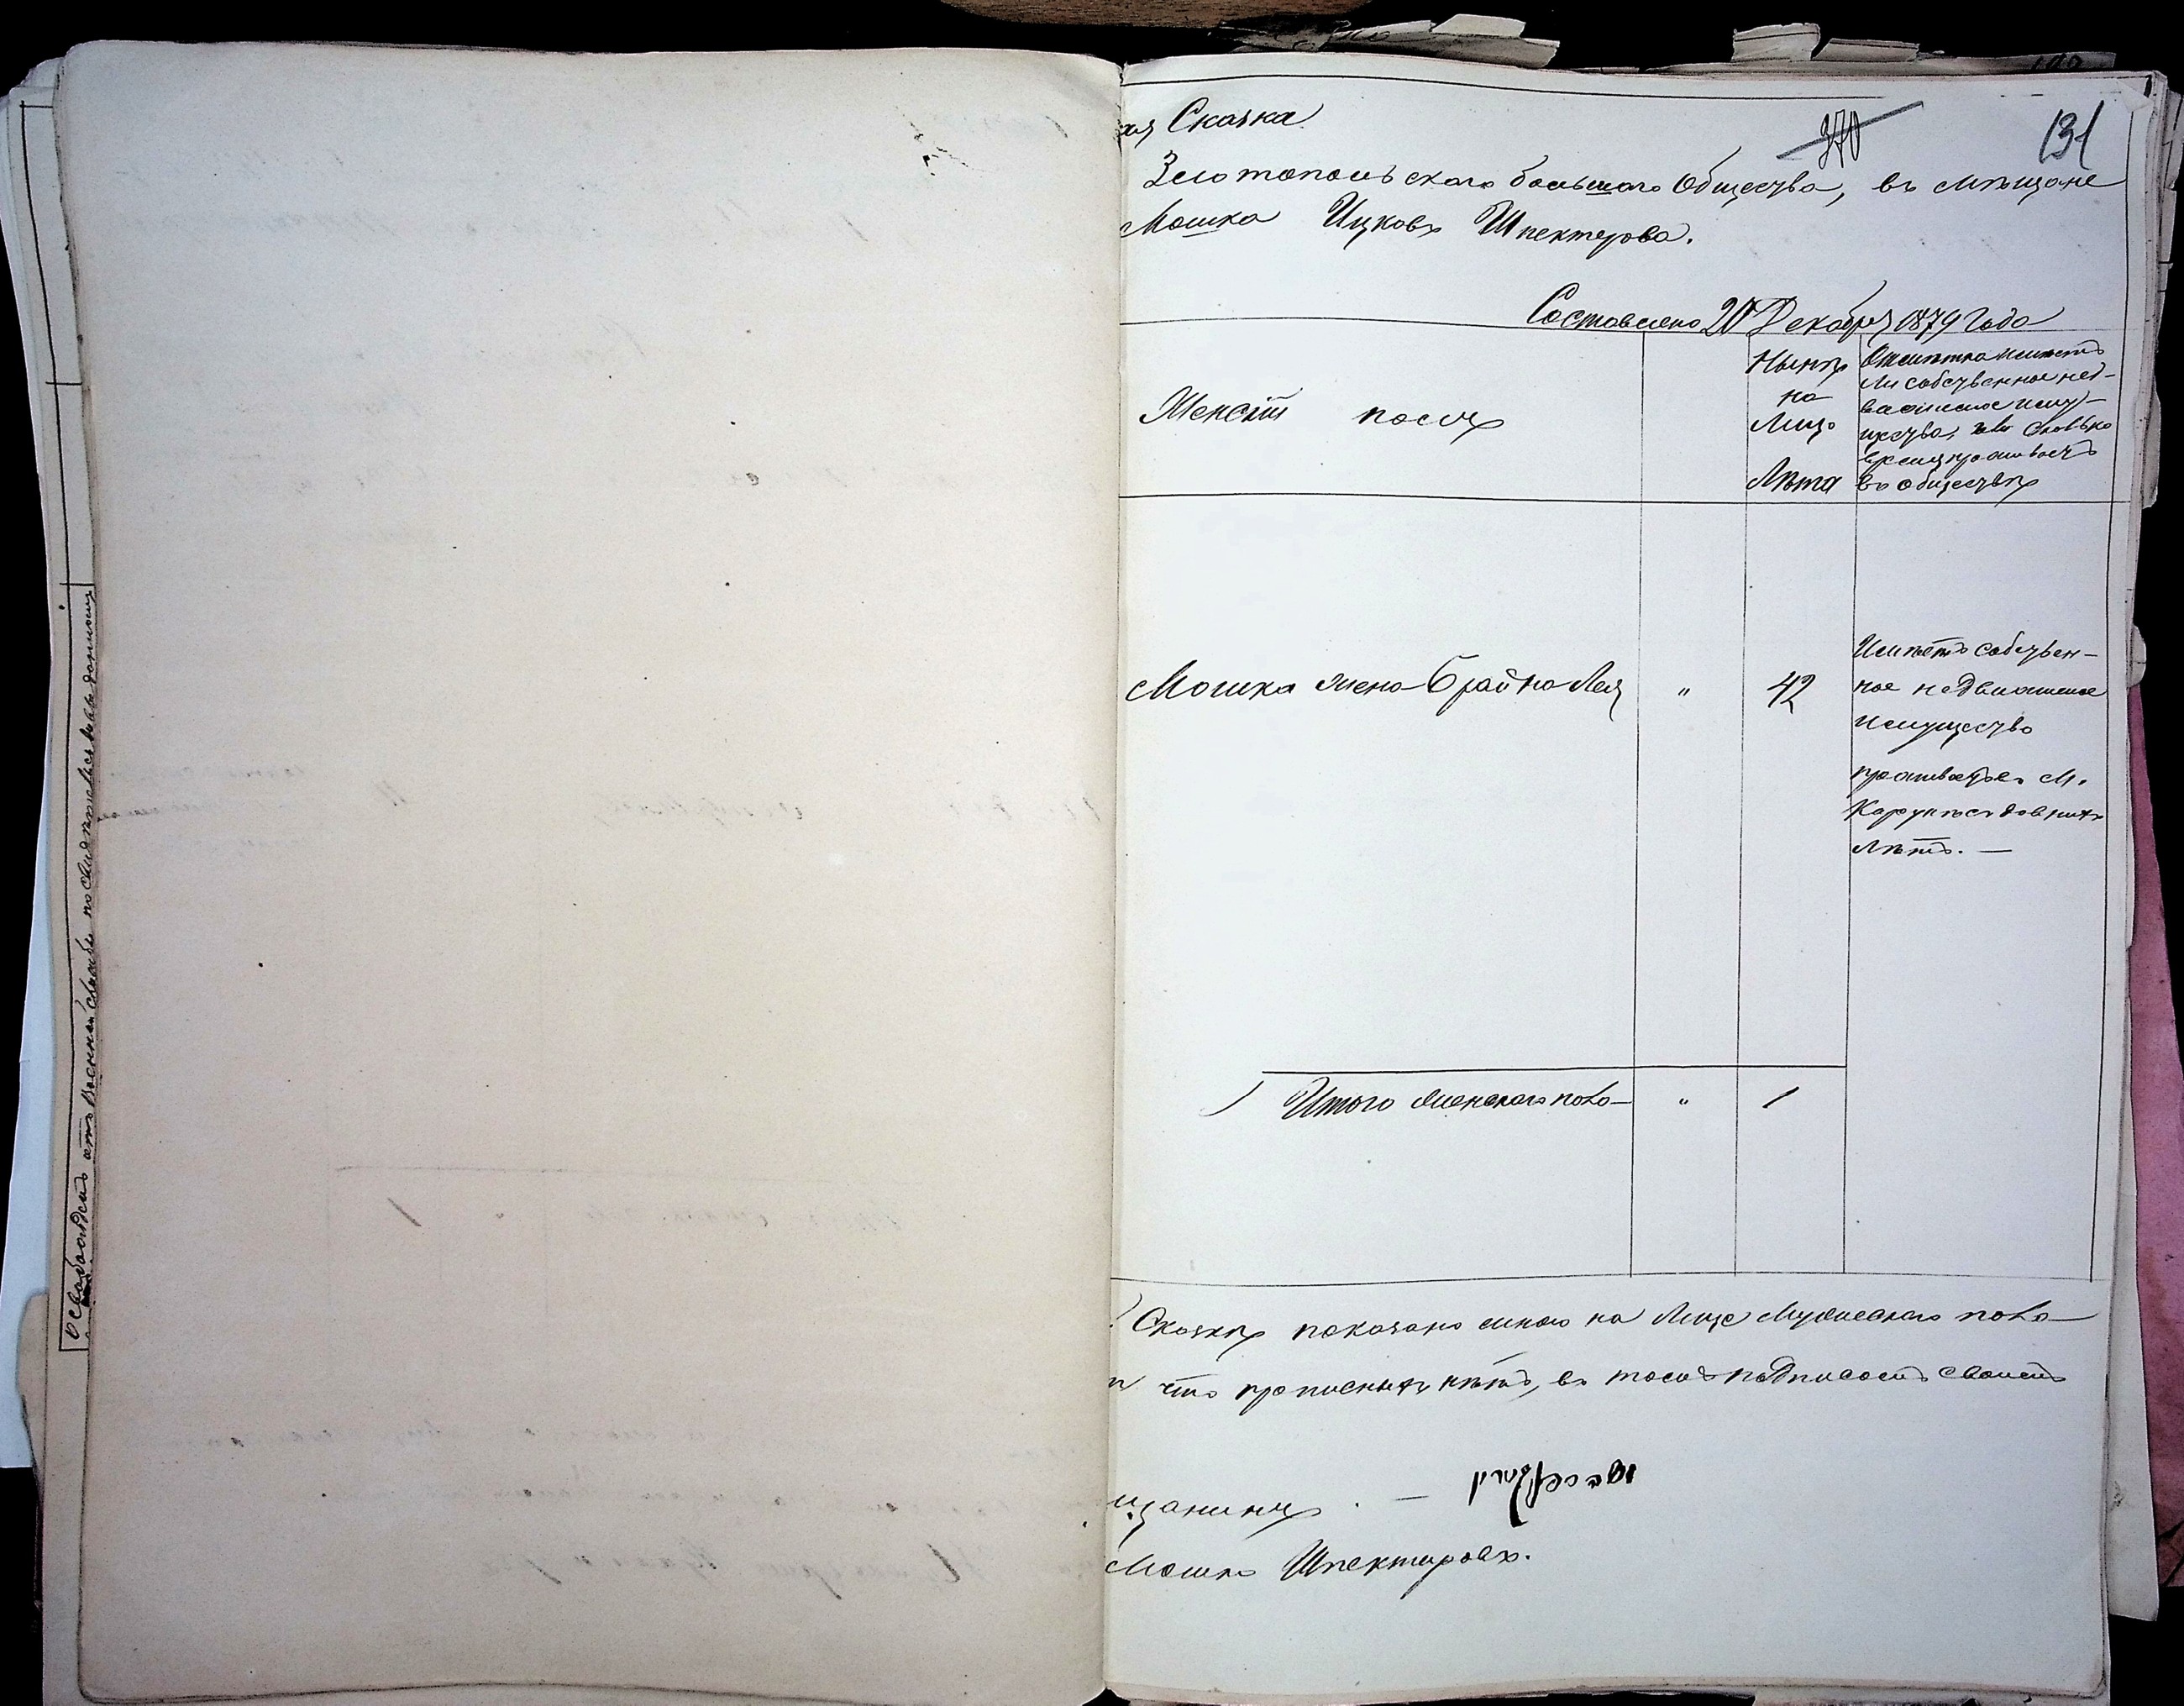 ая Сказка
370
131
Златопольскаго большаго Общества, въ мѣщане
Мошка Ицковъ Шпектерова.
Составлено 20 Декабря 1879 Года
Женскій полъ
Нынѣ
на
Лицо
Лѣта
Отмѣтка имѣетъ
ли собственное нед-
вижимое иму-
щество, или сколько
время проживаетъ
въ обществѣ
Мошка жена Брайна Лея
"
42
Имѣетъ собствен-
ное недвижимое
имущество
проживаетъ въ М.
лѣтъ. —
Итого женскаго пола —
"
1
Сказкѣ показано мною на Лице Мужескаго пола —
что прописныхъ нѣтъ, въ томъ подписомъ своимъ
щанинъ . —
Мошко Шпектировъ.
освобождень отъ Военной службы